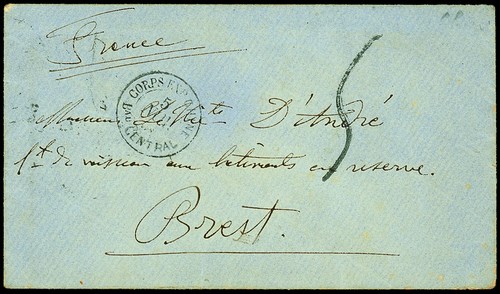 France
CORPS EX
CENTRAL
5
Monsieur D'André
Lt de vaisseau aux bâtiments en réserve.
Brest.